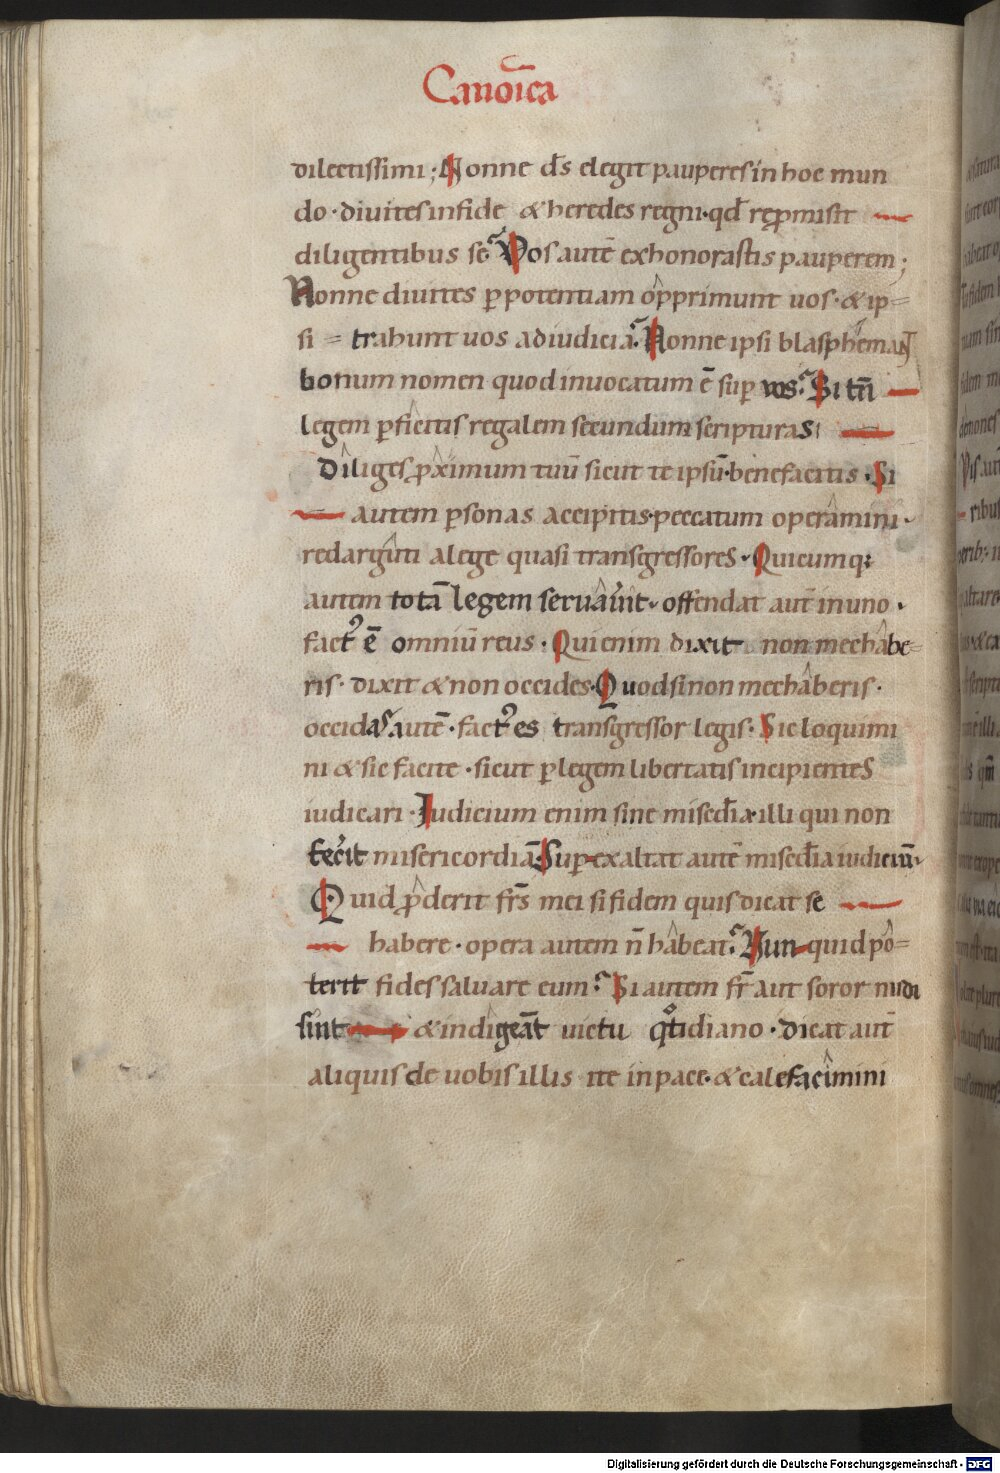 Canoīca
dilectissimi; Nonne d̄s elegit pauperes in hoc mun
do· diuites in fide & heredes regni· qd̄ rep̱misit
diligentibus se? Vos autē exhonorastis pauperem;
Nonne diuites p̱ potentiam opprimunt uos· & ip=
si = trahunt uos ad iudicia? Nonne ipsi blasphemanT
bonum nomen quod inuocatum ē sup̱ uos? Si tn̄
legem p̱ficitis regalem secundum scripturas
Diliges p̱ximum tuū sicut te ipsū· benefacitis · Si
autem p̱sonas accipitis· peccatum operamini ·
redarguti a lege quasi transgressores · Quicumq;
autem totā legem seruauīt· offendat aut̄ in uno ·
fact᾿ ē omniū reus · Qui enim dixit non mechabe=
ris · dixit & non occides· Quod si non mechaberis ·
occidas autē · fact᾿ es transgressor legis· Sic loquimi
ni & sic facite · sicut p̱ legem libertatis incipientes
iudicari · Iudicium enim sine misedīa· illi qui non
fecit misericordiā· Sup̱ exaltat autē misedīa iudiciū·
Quid p̱derit frs̄ mei si fidem quis dicat se
habere · opera autem n̄ habeat? Nunquid po=
terit fides saluare eum? Si autem fr̄ aut soror nudi
sint & indigeāt uictu q°tidiano · dicat aut̄
aliquis de uobis illis · ite in pace· & calefacimini
Digitalisierung gefördert durch die Deutsche Forschungsgemeinschaft - DFG